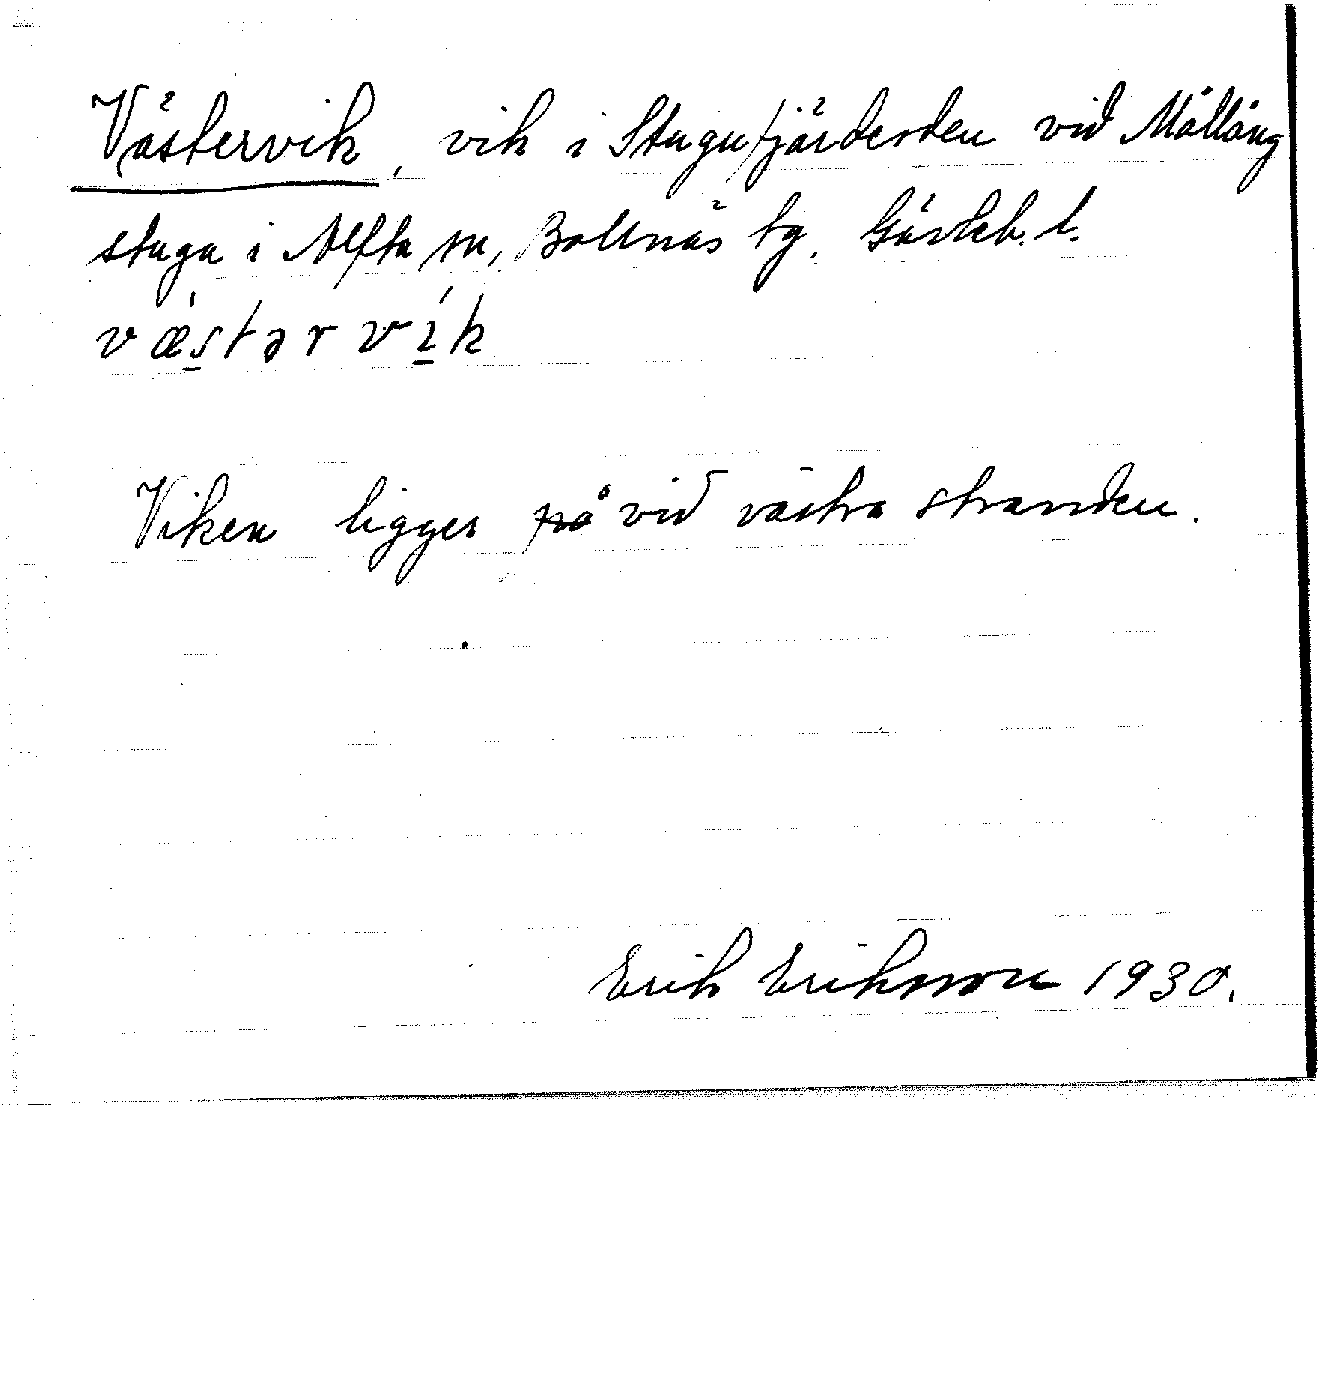 Västervik, vik i Stugufjärdesten vid Mållång
stuga i Alfta sn, Bollnäs tg. Gävleb. l.
væ̀stərvík
Viken ligger på vid västra stranden.
Erik Eriksson 1930.